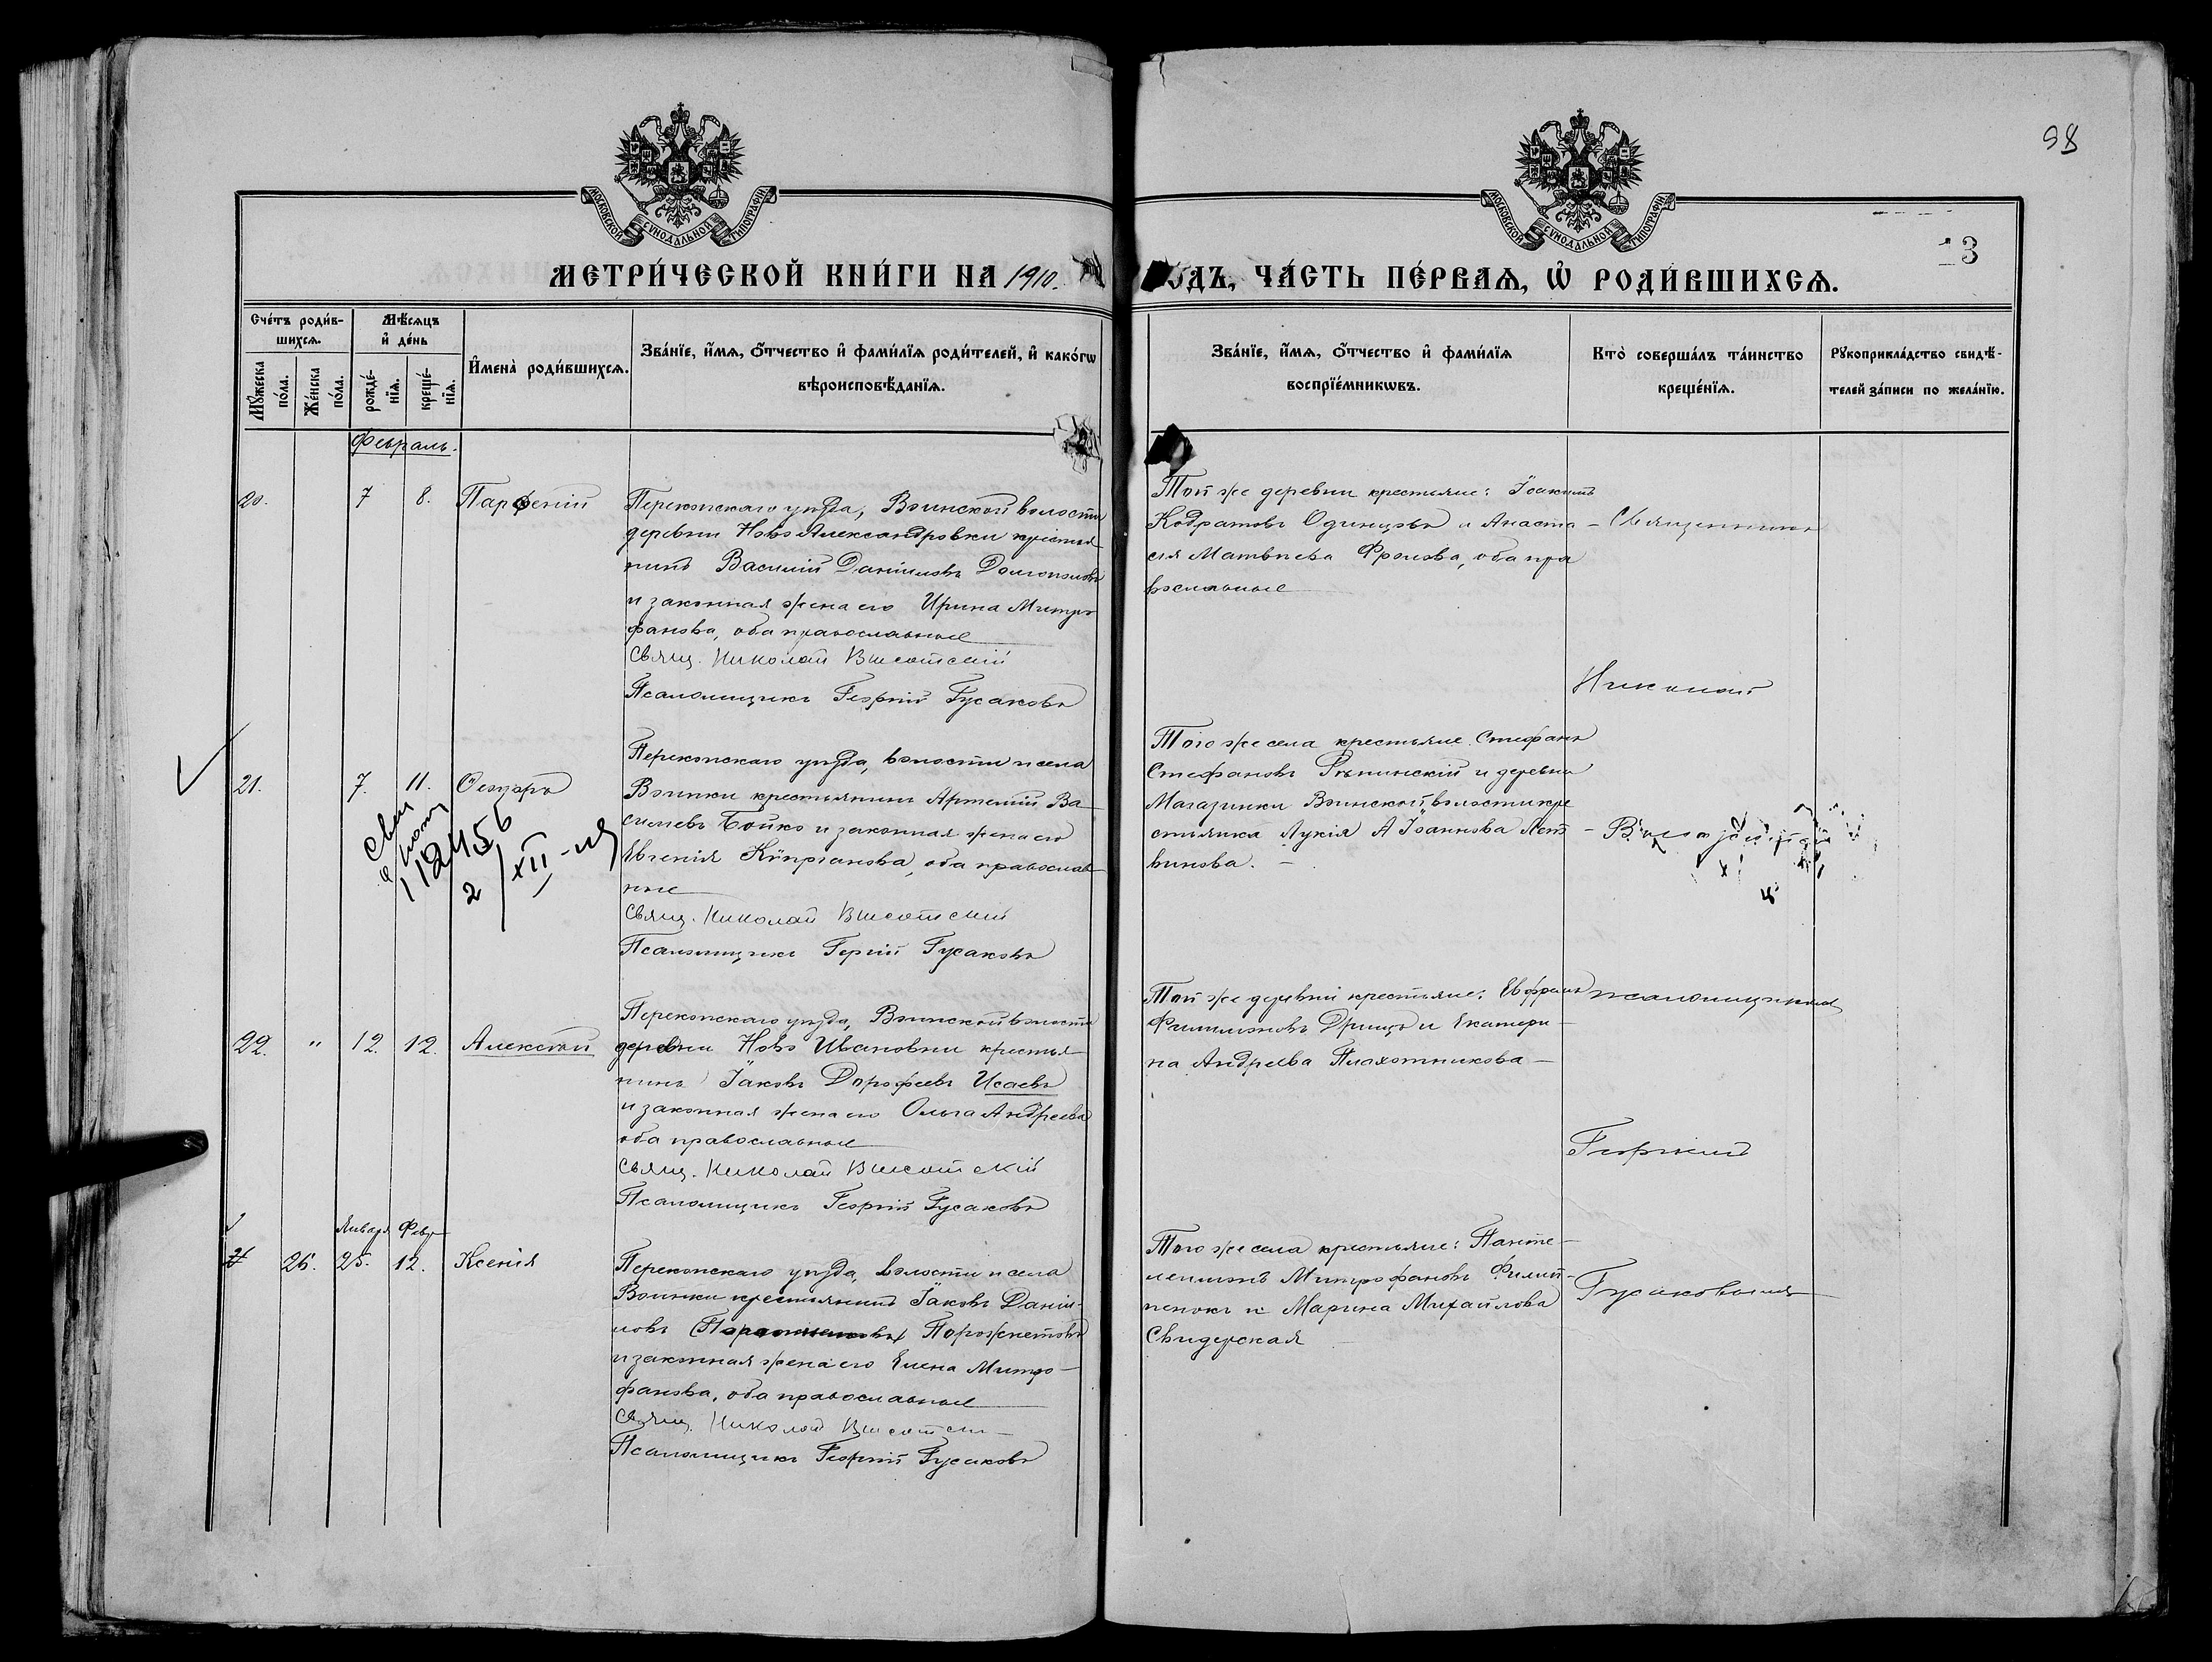 98
МОСКОВСКОЙ СѴНОДАЛЬНОЙ ТИПОГРАФІИ
МОСКОВСКОЙ СѴНОДАЛЬНОЙ ТИПОГРАФІИ
13
МЕТРИ́ЧЕСКОЙ КНИ́ГИ НА 1910.
ОДЪ, ЧА́СТЬ ПЕ́РВАѦ, Ѡ҆ РОДИ́ВШИХСѦ.
Сче́тъ роди́в-
шихсѧ.
Мѣ́сѧцъ
и҆ де́нь
Мꙋ́жеска по́ла.
Же́нска по́ла.
рожде́-
нїѧ.
креще́-
нїѧ.
И҆мена̀ роди́вшихсѧ.
Зва́нїе, и҆́мѧ, ѻ҆́тчество и҆ фами́лїѧ роди́телей, и҆ како́гѡ
вѣроисповѣ́данїѧ.
Зва́нїе, и҆́мѧ, ѻ҆́тчество и҆ фами́лїѧ
воспрїе́мникѡвъ.
Кто̀ соверша́лъ та́инство
креще́нїѧ.
Рꙋкоприкла́дство свидѣ́-
телей за́писи по жела́нїю.
Февраль.
20. 7 8. Парфеній
Перекопскаго уѣзда, Воинской волости
деревни Ново Александровки крестья
нинъ Василій Даніиловъ Долгополовъ
и законная жена его Ирина Митро
фанова, оба православные
Свящ. Николай Высотскій
Псаломщикъ Георгій Гусаковъ
Той же деревни крестьяне: Іоакимъ
Кодратовъ Одинцовъ и Анаста-
сія Матвѣева Фролова, оба пра
вославные
Священникъ
Николай
21. 7. 11. Ѳеодоръ
112456
2/XII
Перекопскаго уѣзда, волости и села
Воинки крестьянинъ Артемій Ва-
сильевъ Бойко и законная жена его
Евгенія Кипріанова, оба православ
ные
Свящ. Николай Высотскій
Псаломщикъ Гергій Гусаковъ
Того же села крестьяне Стефанъ
Стефановъ Рѣпинскій и деревни
Магазинки Воинской волости кре
стьянка Лукія Іоаннова Лит-
винова.
22. " 12. 12. Алексѣй
Перекопскаго уѣзда, Воинской волости
деревни Ново Ивановки крестья
нинъ Іаковъ Дорофеевъ Исаевъ
и законная жена его Ольга Андреева
оба православные
Свящ. Николай Высотскій
Псаломщикъ Георгій Гусаковъ
Той же деревни крестьяне:
Филимоновъ и Екатери-
на Андреева Плахотникова
псаломщикомъ
Георгіемъ
Января Февр
26. 25. 12. Ксенія
Перекопскаго уѣзда, волости и села
Воинки крестьянинъ Іаковъ Даніи-
ловъ Порожнетовъ
и законная жена его Елена Митро-
фанова, оба православные
Свящ. Николай Высотскій
Псаломщикъ Георгій Гусаковъ
Того же села крестьяне: Панте-
леимонъ Митрофановъ Филип-
пенокъ и Марина Михайлова
Свидерская
Гусаковымъ